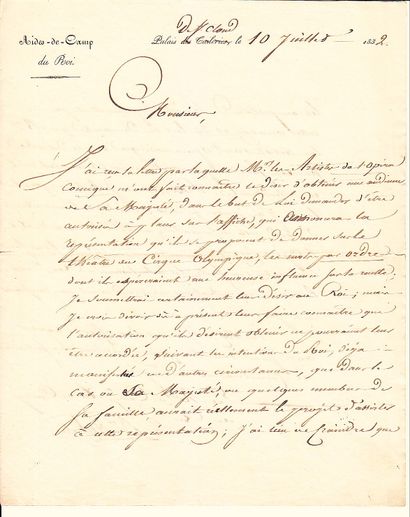 de St Cloud
Aides-de-Camp
du Roi
Palais des Tuileries le 10 Juillet 1832.
Monsieur,
J'ai reçu la lettre par laquelle Mrs les Artistes de l'opéra
Comique m'ont fait connaître le désir d'obtenir une audience
de Sa Majesté, dans le but de lui demander d'être
autorisés à placer sur l'affiche, qui annoncera la
représentation qu'ils se proposent de donner sur le
théâtre du Cirque Olympique, les mots par ordre
dont ils espéreraient une heureuse influence sur la recette.
Je soumettrai certainement leur désir au Roi; mais
je crois devoir dès à présent leur faire connaître que
l'autorisation qu'ils désirent obtenir ne pourrait leur
être accordée, suivant les intentions du Roi, déjà
manifestées en d'autres circonstances, que dans le
cas où Sa Majesté, ou quelques membres de
sa famille, aurait réellement le projet d'assister
à cette représentation; J'ai lieu de craindre que